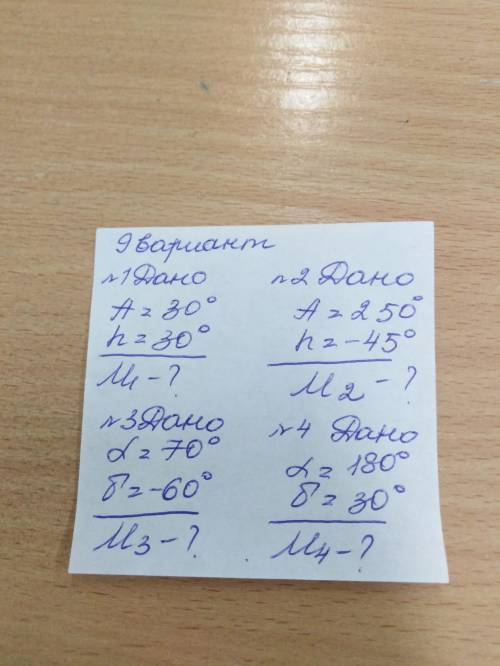 9 вариант
№1 Дано
A = 30°
h = 30°
M1 - ?
№2 Дано
A = 250°
h = -45°
M2 - ?
№3 Дано
α = 70°
б = -60°
M3 - ?
№4 Дано
α = 180°
б = 30°
M4 - ?